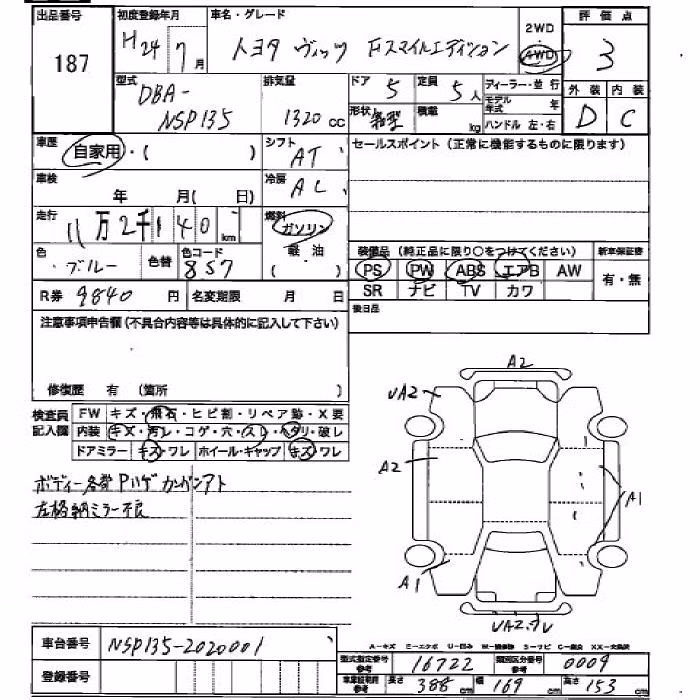 出品番号 初度登録年月 車名・グレード 2WD 評価点
187 H24 7月 トヨタ ヴィッツ Fスマイルエディション 4WD 3
型式 排気量 ドア 定員 ディーラー・並行 外装 内装
DBA- 5 5人 モデル年式 年
NSP135 1320cc 形状 箱型 積載 kg ハンドル 左・右 D C
車歴 自家用・( ) シフト AT セールスポイント (正常に機能するものに限ります)
車検 年 月( 日) 冷房 AC
走行 11万2千140km 燃料 ガソリン
色 ブルー 色替 色コード 8S7 軽油 ( ) 装備品 (純正品に限り○をつけてください) 新車保証書
PS PW ABS エアB AW 有・無
R券 9840円 名変期限 月 日 SR ナビ TV カワ
注意事項申告欄(不具合内容等は具体的に記入して下さい) 後日品
修復歴 有 (箇所 )
検査員記入欄 FW キズ・飛石・ヒビ割・リペア跡・X要
内装 キズ・汚レ・コゲ・穴・スレ・ヘタリ・破レ
ドアミラー キズ・ワレ ホイール・キャップ キズ・ワレ
ボディー各部Pハゲ カンバンアト
左格納ミラー不良
A2
UA2
A2
A1
A1
UA2.3U
車台番号 NSP135-2020001
A-キズ E-エクボ U-凹み W-補修跡 S-サビ C-腐食 XX-交換済
登録番号 型式指定番号 参考 16722 類別区分番号 参考 0009
車検証記載 参考 長さ 388cm 幅 169cm 高さ 153cm